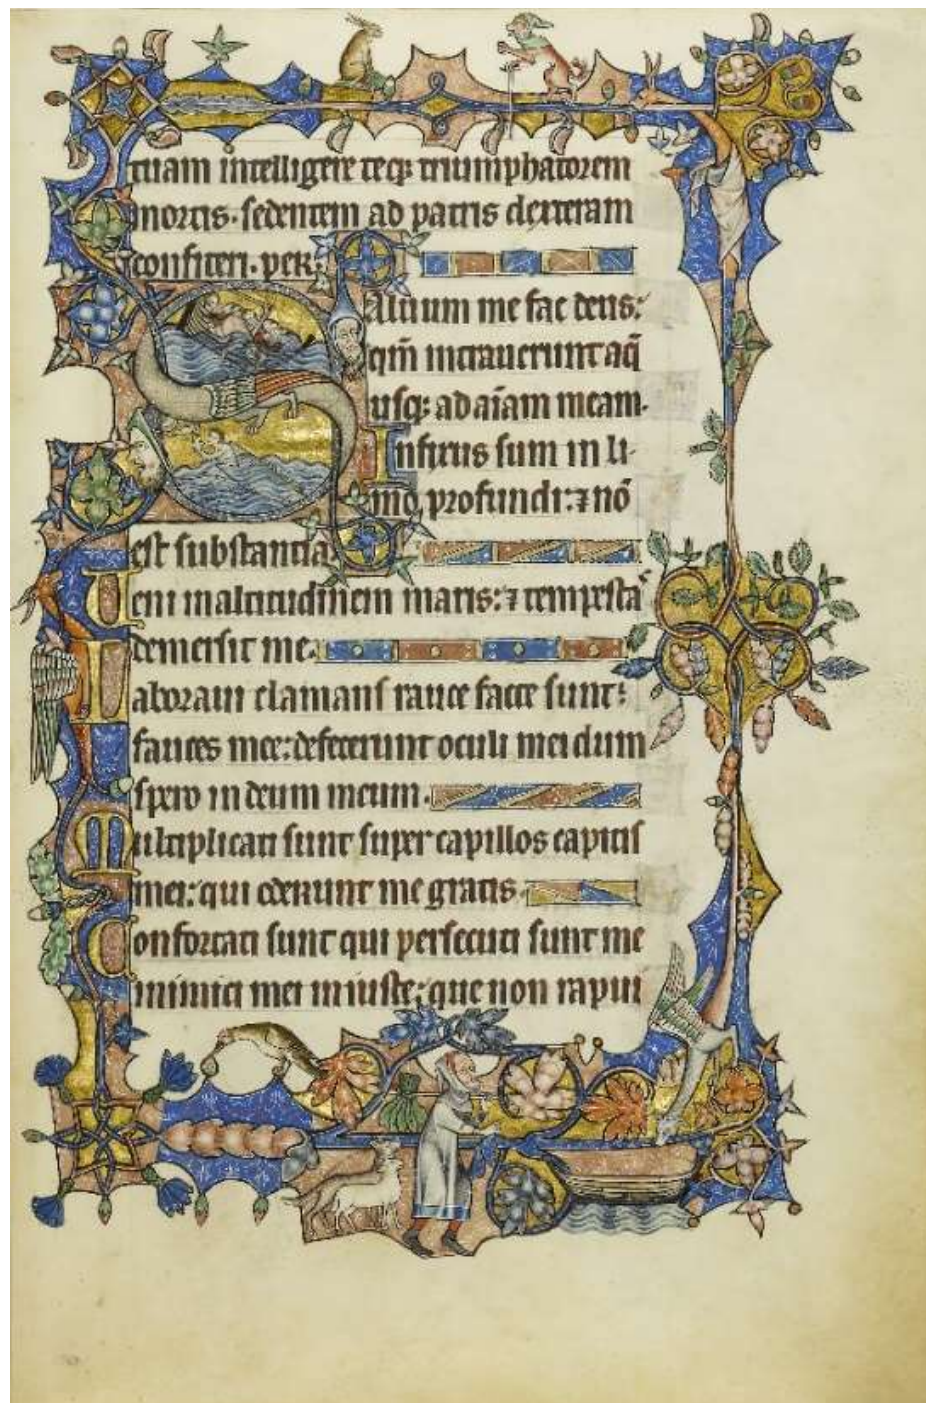 tuam intelligere teq; triumphatorem
mortis. sedentem ad patris dexteram
confiteri. per.
Saluum me fac deus:
qm̄ intrauerunt aq̄
usq; ad aīam meam.
Infixus sum in li-
mo profundi: ⁊ nō
est substantia.
Ueni in altitudinem maris: ⁊ tempesta
demersit me.
Laboraui clamans rauce facte sunt:
fauces mee: defecerunt oculi mei dum
spero in deum meum.
Multiplicati sunt super capillos capitis
mei: qui oderunt me gratis.
Confortati sunt qui persecuti sunt me
inimici mei iniuste: que non rapui